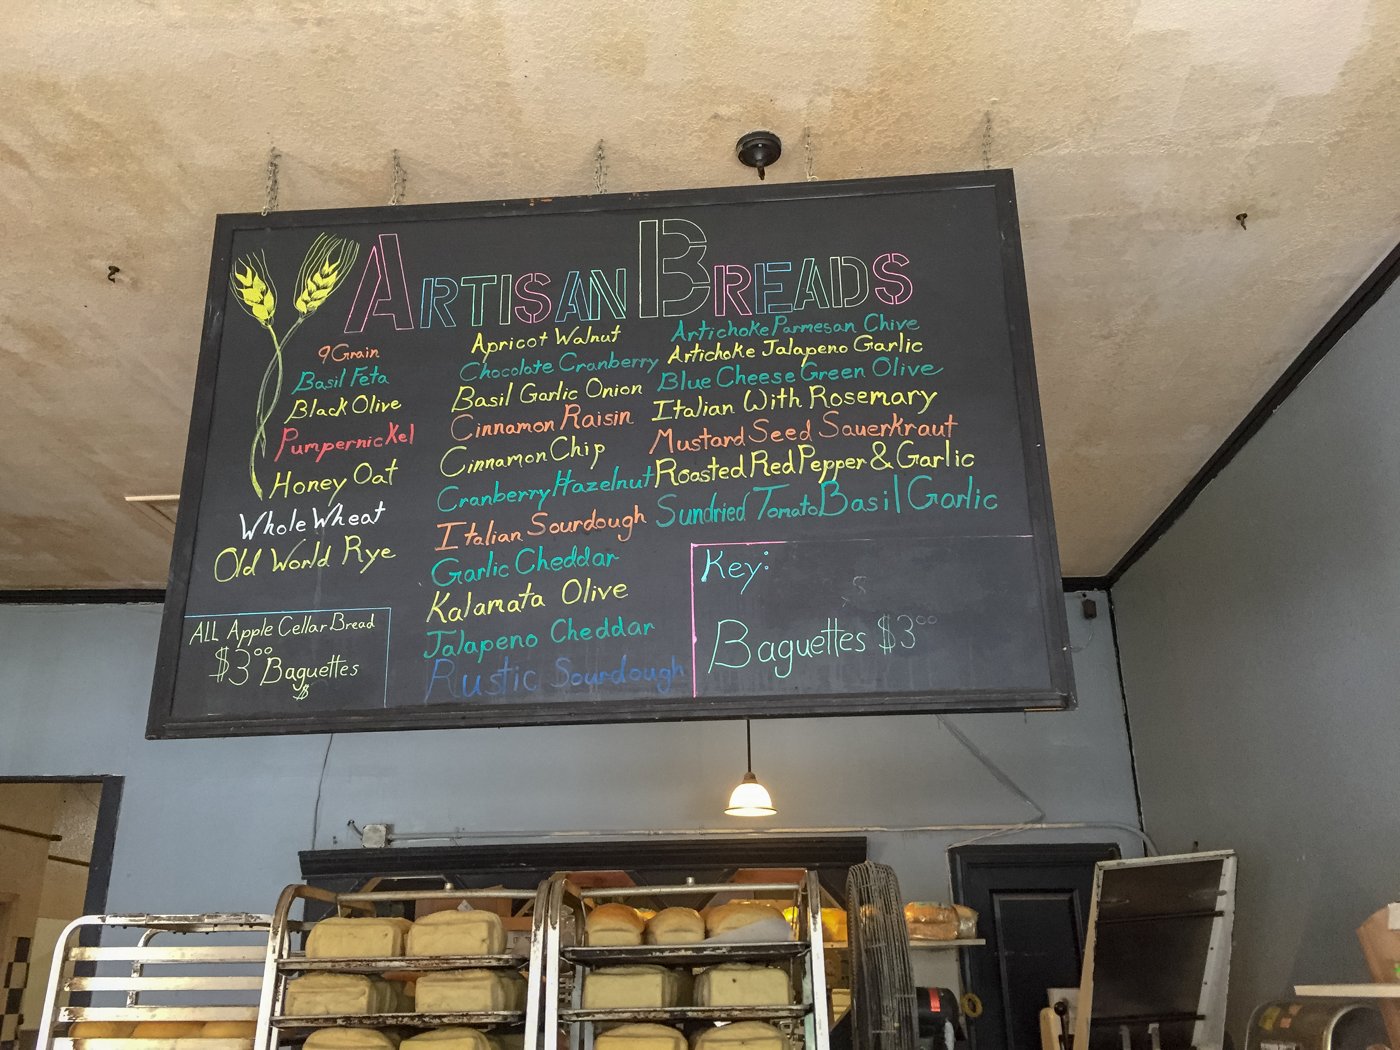 ARTISAN BREADS
9 Grain
Basil Feta
Black Olive
Pumpernickel
Honey Oat
Whole Wheat
Old World Rye
ALL Apple Cellar Bread
$3.00 Baguettes
$
Apricot Walnut
Chocolate Cranberry
Basil Garlic Onion
Cinnamon Raisin
Cinnamon Chip
Cranberry Hazelnut
Italian Sourdough
Garlic Cheddar
Kalamata Olive
Jalapeno Cheddar
Rustic Sourdough
Artichoke Parmesan Chive
Artichoke Jalapeno Garlic
Blue Cheese Green Olive
Italian With Rosemary
Mustard Seed Sauerkraut
Roasted Red Pepper & Garlic
Sundried Tomato Basil Garlic
Key:
Baguettes $3.00